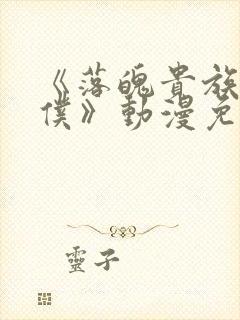 《落魄貴族
僕》動漫免
靈子